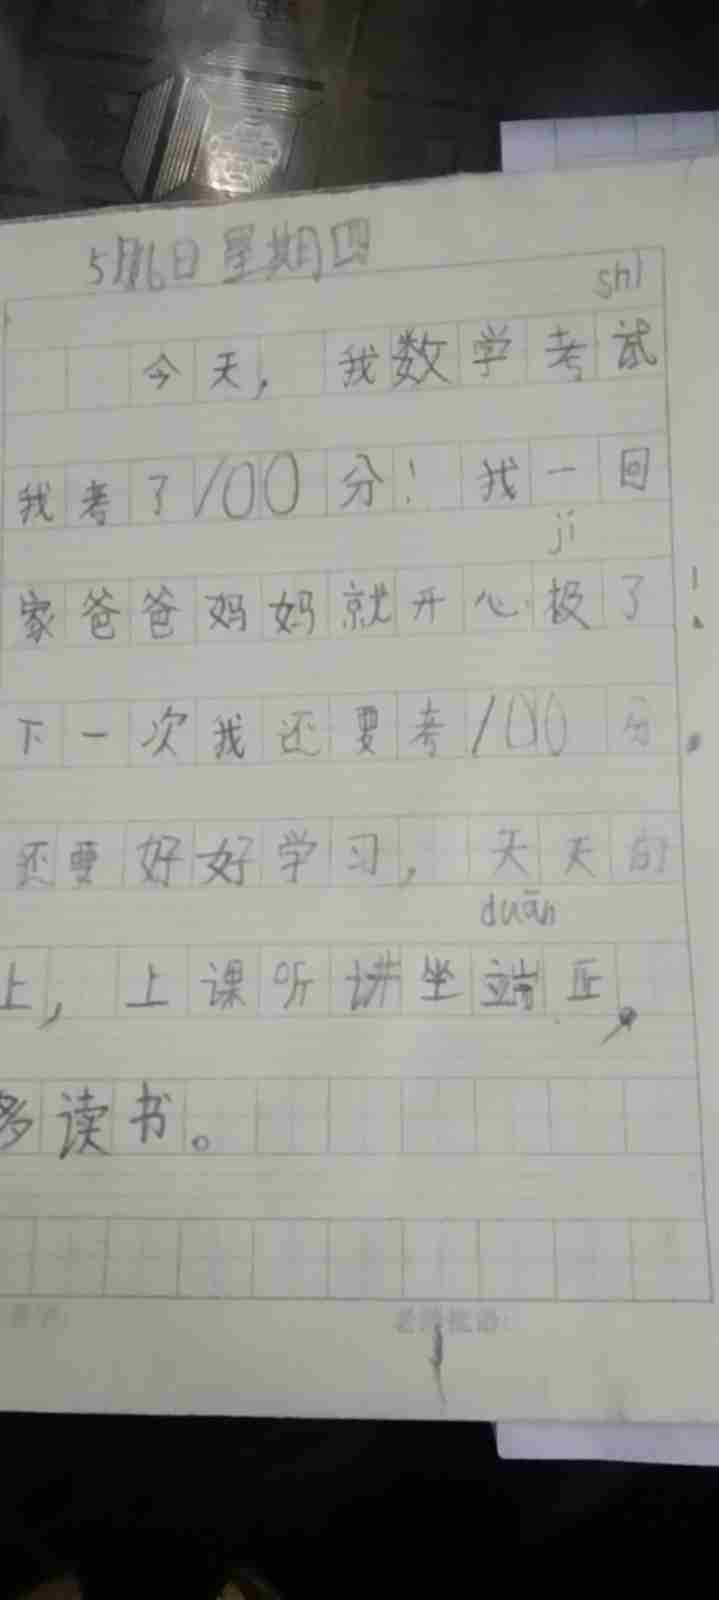 5月16日 星期四
shì
今天，我数学考试
我考了100分！我一回
jí
家爸爸妈妈就开心极了！
下一次我还要考100分。
还要好好学习，天天向
duān
上，上课听讲坐端正，
多读书。
老师批语：